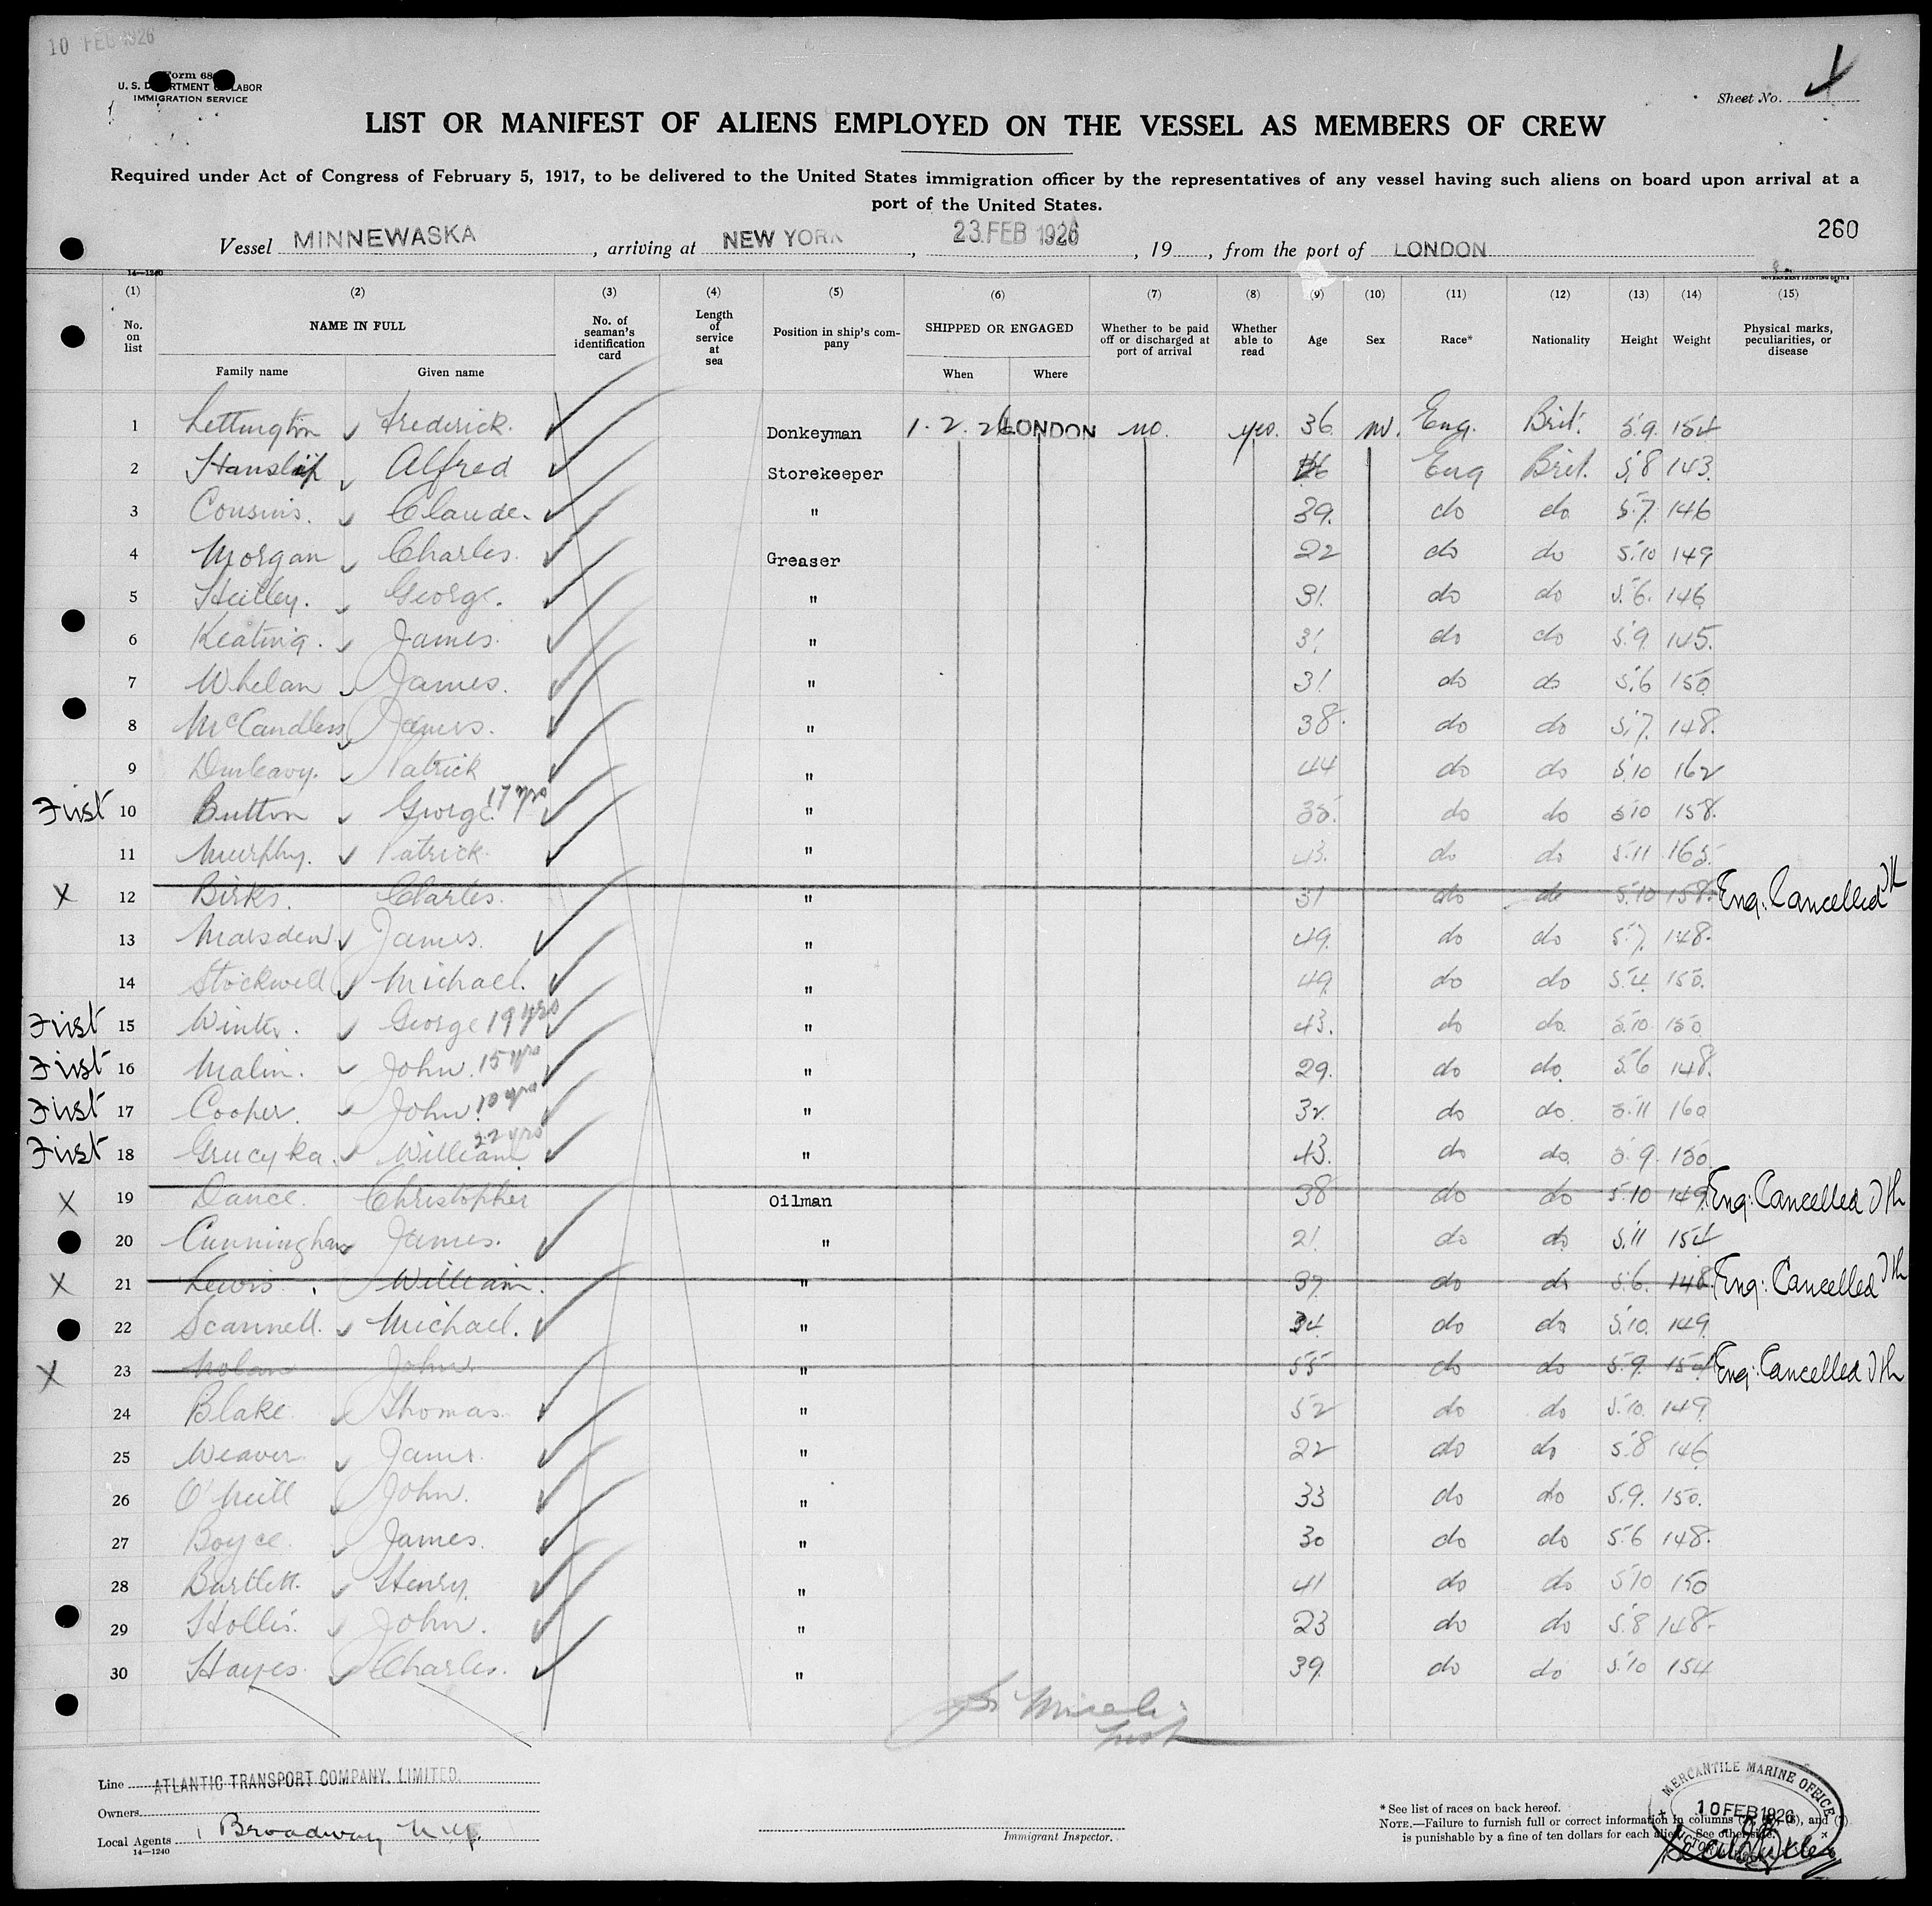 10 FEB 1926
Form 68
U. S. DEPARTMENT OF LABOR
IMMIGRATION SERVICE
Sheet No.
LIST OR MANIFEST OF ALIENS EMPLOYED ON THE VESSEL AS MEMBERS OF CREW
Required under Act of Congress of February 5, 1917, to be delivered to the United States immigration officer by the representatives of any vessel having such aliens on board upon arrival at a
port of the United States.
260
Vessel MINNEWASKA, arriving at NEW YORK, 23 FEB 1926, 19, from the port of LONDON
14—1240
GOVERNMENT PRINTING OFFICE
(1) (2) (3) (4) (5) (6) (7) (8) (9) (10) (11) (12) (13) (14) (15)
No. on list NAME IN FULL Family name Given name No. of seaman's identification card Length of service at sea Position in ship's company SHIPPED OR ENGAGED When Where Whether to be paid off or discharged at port of arrival Whether able to read Age Sex Race* Nationality Height Weight Physical marks, peculiarities, or disease
1 Lettington Frederick. Donkeyman 1. 2. 26 LONDON no. yes. 36 m. Eng. Brit. 5.9. 154
2 Hanslip Alfred Storekeeper Eng Brit. 5.8 143.
3 Cousins. Claude. " 39. do do 5.7. 146
4 Morgan Charles. Greaser 22 do do 5.10 149
5 George. " 31. do do 5.6. 146
6 Keating. James. " 31 do do 5.9. 145.
7 Whelan James. " 31 do do 5.6 150
8 McCandless James. " 38. do do 5.7. 148.
9 Dunleavy. Patrick " 44 do do 5.10 162
First 10 Button George. 17 yrs " 35. do do 5.10 158.
11 Murphy. Patrick. " 43. do do 5.11 165.
X 12 Birks. Charles. " 31 do do 5.10 158. Eng: Cancelled
13 Marsden James. " 49. do do 5.7. 148.
14 Stockwell Michael. " 49. do do 5.4. 150.
First 15 Winter. George 19 yrs " 43. do do. 5.10. 150
First 16 Malin. John. 15 yrs " 29. do do. 5.6 148.
First 17 Cooper. John. 10 yrs " 32. do do. 5.11 160
First 18 Grucyka. William. 22 yrs " 43. do do. 5.9. 150
X 19 Dance. Christopher Oilman 38 do do 5.10 149. Eng: Cancelled
20 Cunningham James. " 21. do do 5.11 154
X 21 Lewis. William. " 37. do do 5.6. 148. Eng: Cancelled
22 Scannell. Michael. " 34. do do 5.10. 149
X 23 Nolan John. " 55 do do 5.9. 154 Eng: Cancelled
24 Blake Thomas. " 52 do do 5.10. 149
25 Weaver James. " 22 do do 5.8 146
26 O'Neill John. " 33 do do 5.9. 150.
27 Boyce. James. " 30 do do 5.6 148.
28 Bartlett. Henry. " 41 do do 5.10 150
29 Hollis. John. " 23 do do 5.8 148.
30 Hayes. Charles. " 39. do do 5.10 154
Line ATLANTIC TRANSPORT COMPANY, LIMITED.
Owners
Local Agents 1 Broadway N.Y.
14—1240
Immigrant Inspector.
* See list of races on back hereof.
NOTE.—Failure to furnish full or correct information in columns and
is punishable by a fine of ten dollars for each alien. See other side.
MERCANTILE MARINE OFFICE
10 FEB 1926